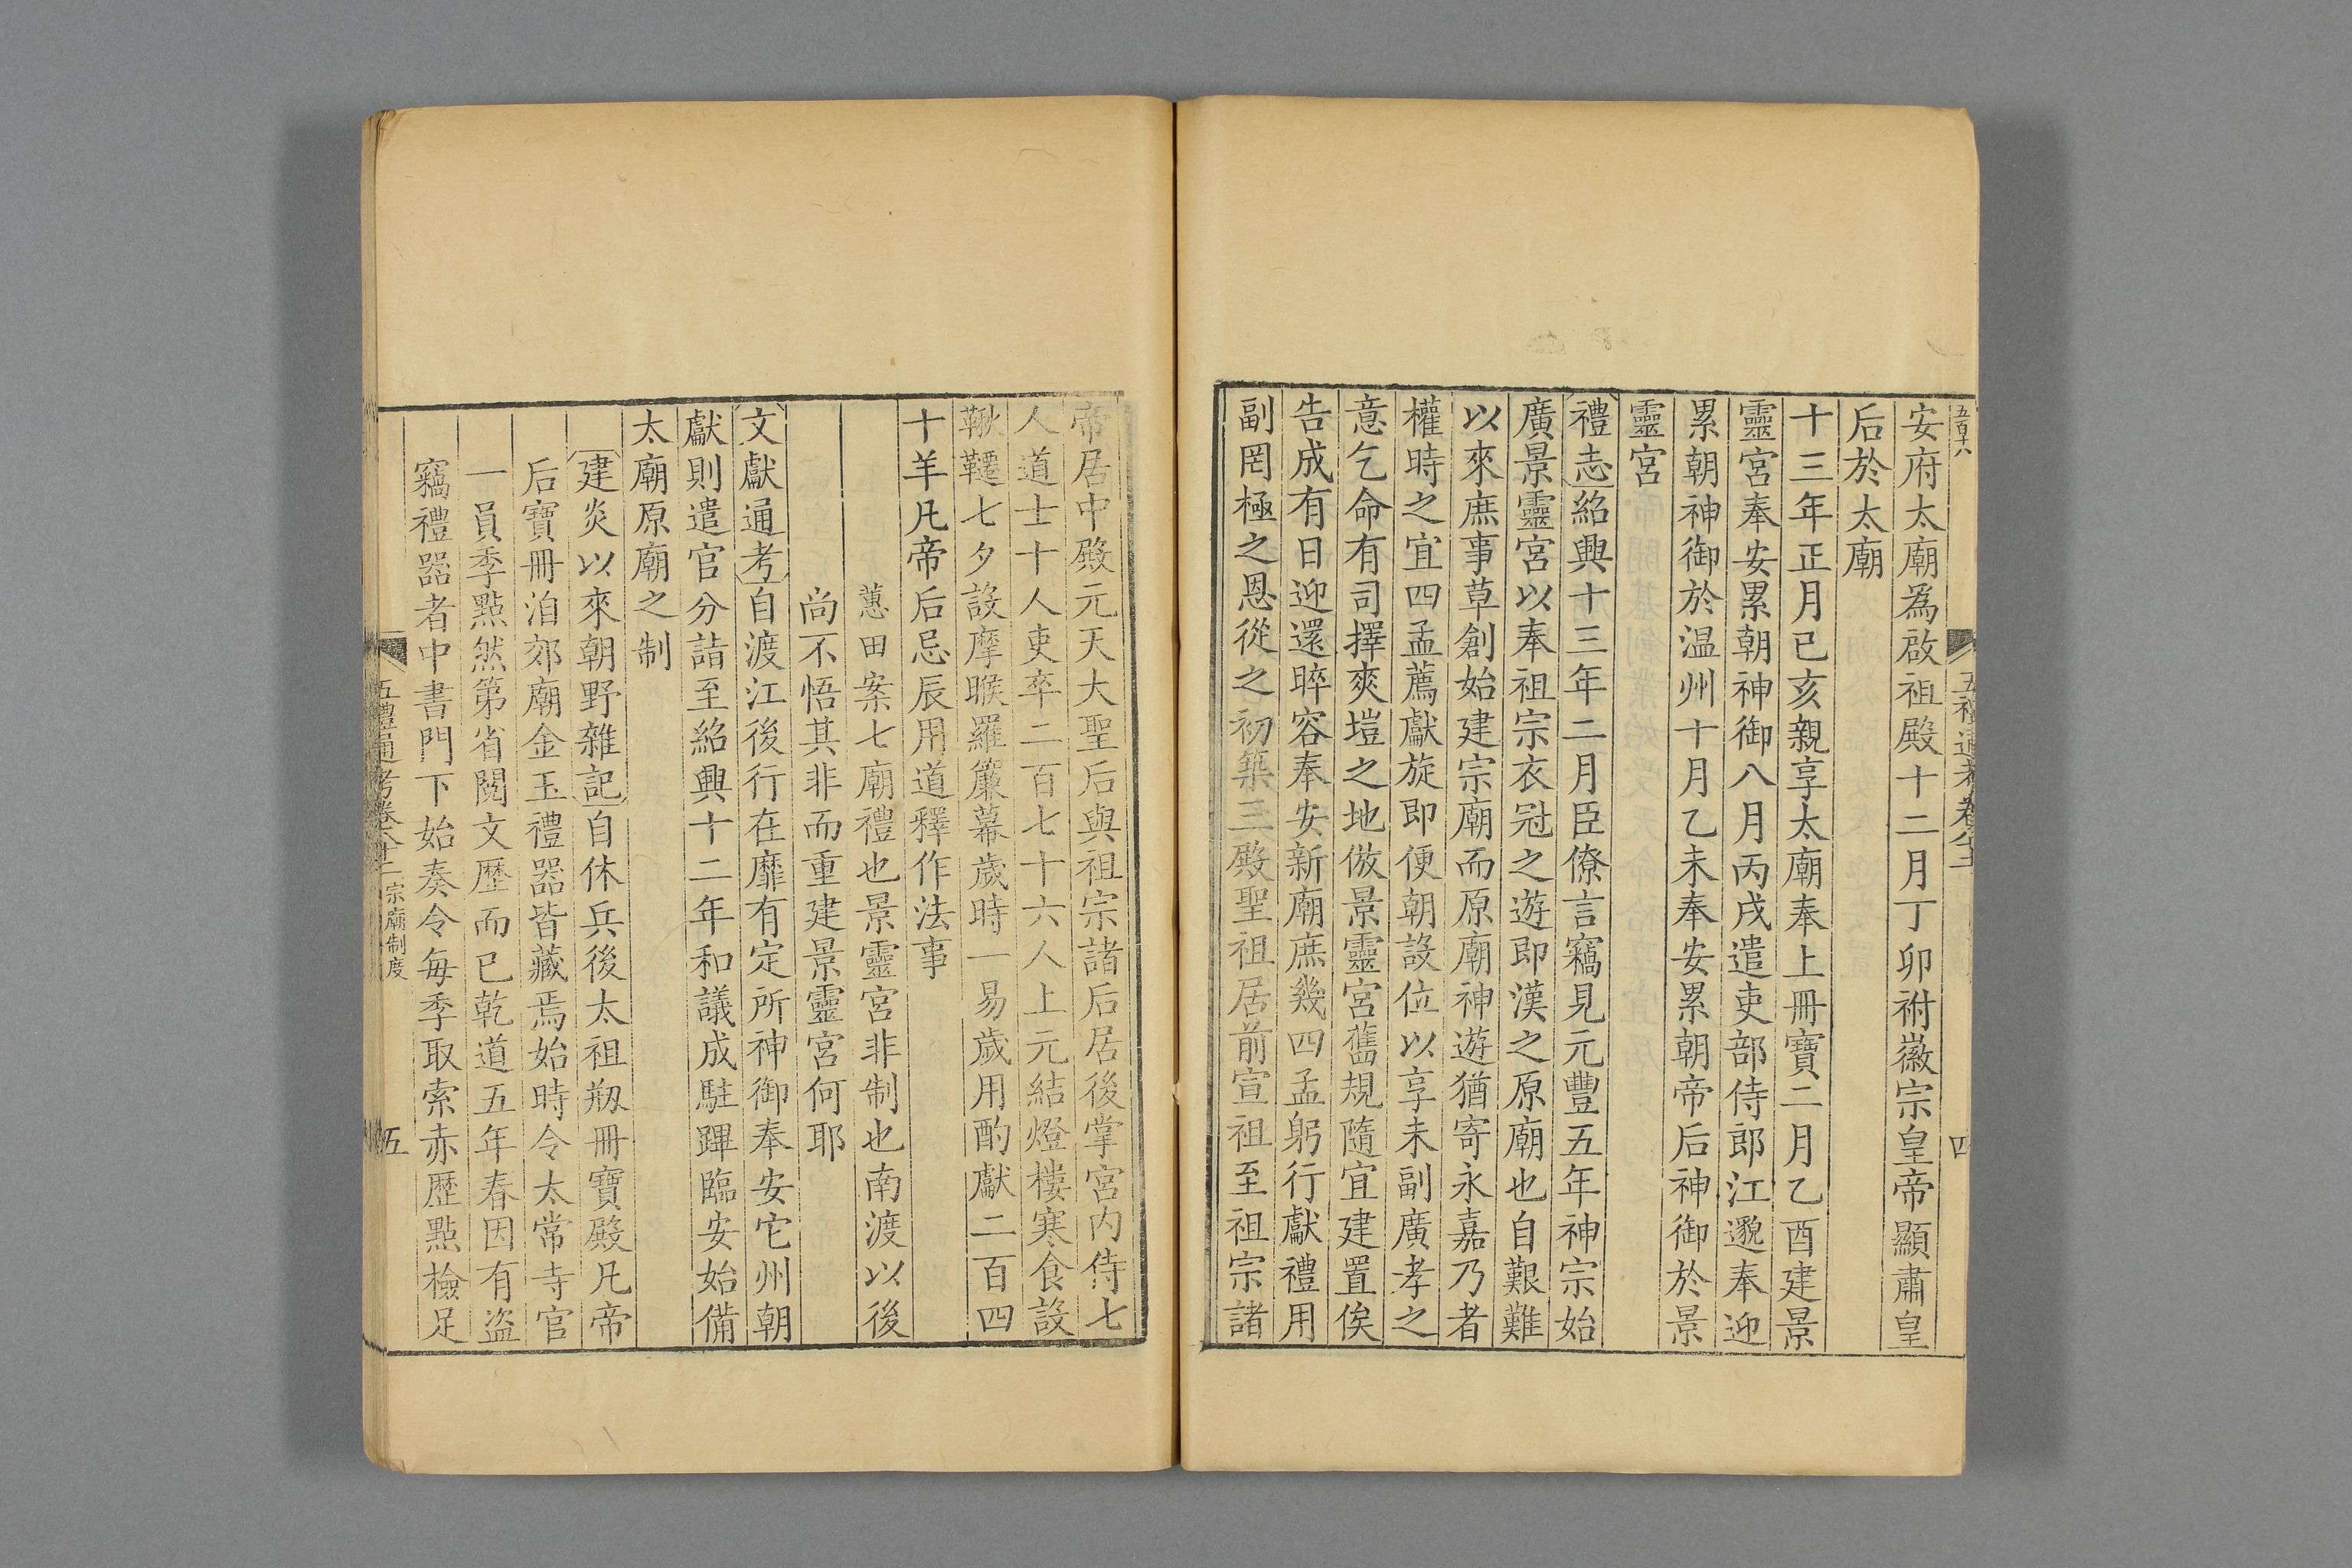 五百十八
安府太廟爲啟祖殿十二月丁卯祔徽宗皇帝顯肅皇
后於太廟
十三年正月己亥親享太廟奉上冊寶二月乙酉建景
靈宮奉安累朝神御八月丙戌遣吏部侍郎江邈奉迎
累朝神御於温州十月乙未奉安累朝帝后神御於景
靈宮
禮志紹興十三年二月臣僚言竊見元豐五年神宗始
廣景靈宮以奉祖宗衣冠之遊即漢之原廟也自艱難
以來庶事草創始建宗廟而原廟神遊猶寄永嘉乃者
權時之宜四孟薦獻旋即便朝設位以享未副廣孝之
意乞命有司擇爽塏之地倣景靈宮舊規隨宜建置俟
告成有日迎還晬容奉安新廟庶幾四孟躬行獻禮用
副罔極之恩從之初築三殿聖祖居前宣祖至祖宗諸
四
帝居中殿元天大聖后與祖宗諸后居後掌宮内侍七
人道士十人吏卒二百七十六人上元結燈樓寒食設
鞦韆七夕設摩睺羅簾幕歲時一易歲用酌獻二百四
十羊凡帝后忌辰用道釋作法事
蕙田案七廟禮也景靈宮非制也南渡以後
尚不悟其非而重建景靈宮何耶
文獻通考自渡江後行在靡有定所神御奉安它州朝
獻則遣官分詣至紹興十二年和議成駐蹕臨安始備
太廟原廟之制
建炎以來朝野雜記自休兵後太祖剏冊寶殿凡帝
后寶冊洎郊廟金玉禮器皆藏焉始時令太常寺官
一員季點然第省閱文歷而已乾道五年春因有盜
竊禮器者中書門下始奏令每季取索赤歷點檢足
五禮通考卷八十二 宗廟制度
五